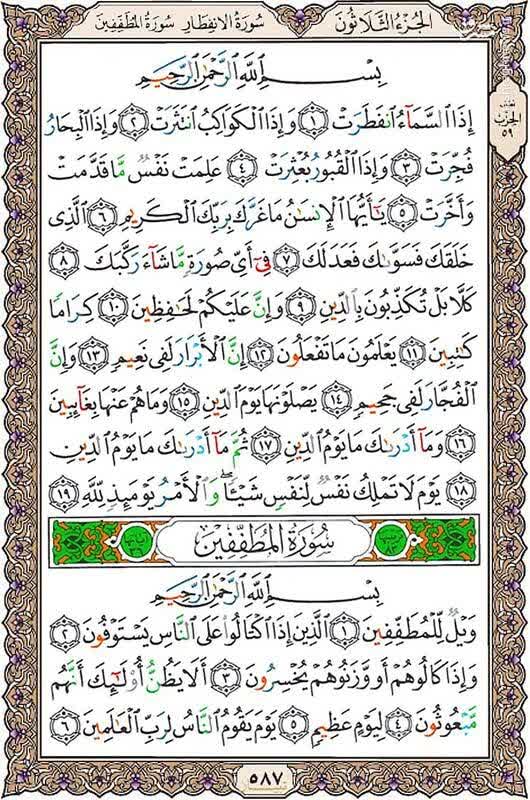 الجُزءُ الثَّلَاثُونَ سُورَةُ الِانفِطَارِ سُورَةُ المُطَفِّفِينَ
نصف
الحزب
٥٩
بِسۡمِ ٱللَّهِ ٱلرَّحۡمَٰنِ ٱلرَّحِيمِ
إِذَا ٱلسَّمَآءُ ٱنفَطَرَتۡ ١ وَإِذَا ٱلۡكَوَاكِبُ ٱنتَثَرَتۡ ٢ وَإِذَا ٱلۡبِحَارُ
فُجِّرَتۡ ٣ وَإِذَا ٱلۡقُبُورُ بُعۡثِرَتۡ ٤ عَلِمَتۡ نَفۡسٞ مَّا قَدَّمَتۡ
وَأَخَّرَتۡ ٥ يَٰٓأَيُّهَا ٱلۡإِنسَٰنُ مَا غَرَّكَ بِرَبِّكَ ٱلۡكَرِيمِ ٦ ٱلَّذِي
خَلَقَكَ فَسَوَّىٰكَ فَعَدَلَكَ ٧ فِيٓ أَيِّ صُورَةٖ مَّا شَآءَ رَكَّبَكَ ٨
كَلَّا بَلۡ تُكَذِّبُونَ بِٱلدِّينِ ٩ وَإِنَّ عَلَيۡكُمۡ لَحَٰفِظِينَ ١٠ كِرَامٗا
كَٰتِبِينَ ١١ يَعۡلَمُونَ مَا تَفۡعَلُونَ ١٢ إِنَّ ٱلۡأَبۡرَارَ لَفِي نَعِيمٖ ١٣ وَإِنَّ
ٱلۡفُجَّارَ لَفِي جَحِيمٖ ١٤ يَصۡلَوۡنَهَا يَوۡمَ ٱلدِّينِ ١٥ وَمَا هُمۡ عَنۡهَا بِغَآئِبِينَ
١٦ وَمَآ أَدۡرَىٰكَ مَا يَوۡمُ ٱلدِّينِ ١٧ ثُمَّ مَآ أَدۡرَىٰكَ مَا يَوۡمُ ٱلدِّينِ
١٨ يَوۡمَ لَا تَمۡلِكُ نَفۡسٞ لِّنَفۡسٖ شَيۡـٔٗاۖ وَٱلۡأَمۡرُ يَوۡمَئِذٖ لِّلَّهِ ١٩
ترتيبها ٨٣ سُورَةُ المُطَفِّفِينَ آياتها ٣٦
بِسۡمِ ٱللَّهِ ٱلرَّحۡمَٰنِ ٱلرَّحِيمِ
وَيۡلٞ لِّلۡمُطَفِّفِينَ ١ ٱلَّذِينَ إِذَا ٱكۡتَالُواْ عَلَى ٱلنَّاسِ يَسۡتَوۡفُونَ ٢
وَإِذَا كَالُوهُمۡ أَو وَّزَنُوهُمۡ يُخۡسِرُونَ ٣ أَلَا يَظُنُّ أُوْلَٰٓئِكَ أَنَّهُم
مَّبۡعُوثُونَ ٤ لِيَوۡمٍ عَظِيمٖ ٥ يَوۡمَ يَقُومُ ٱلنَّاسُ لِرَبِّ ٱلۡعَٰلَمِينَ ٦
٥٨٧